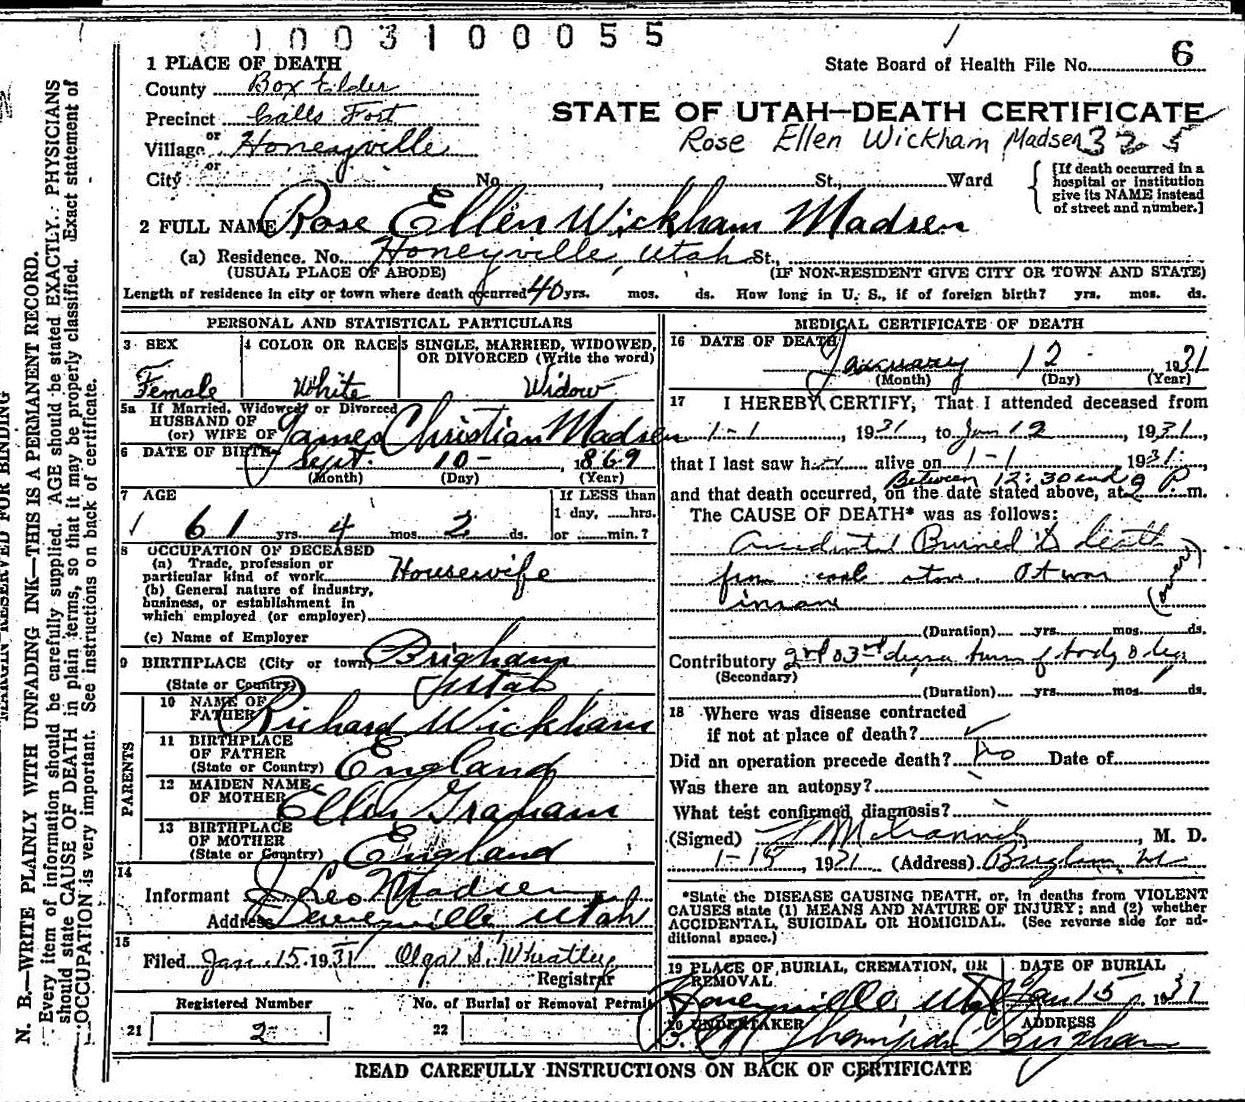 1003100055
1 PLACE OF DEATH
State Board of Health File No. 6
County Box Elder
STATE OF UTAH—DEATH CERTIFICATE
Precinct Calls Fort
Rose Ellen Wickham Madsen 325
or
Village Honeyville
or
City No. , St., Ward
[If death occurred in a
hospital or institution
give its NAME instead
of street and number.]
2 FULL NAME Rose Ellen Wickham Madsen
(a) Residence. No. Honeyville, Utah St.,
(USUAL PLACE OF ABODE) (IF NON-RESIDENT GIVE CITY OR TOWN AND STATE)
Length of residence in city or town where death occurred 40 yrs. mos. ds. How long in U. S., if of foreign birth? yrs. mos. ds.
PERSONAL AND STATISTICAL PARTICULARS
3 SEX
Female
4 COLOR OR RACE
White
5 SINGLE, MARRIED, WIDOWED,
OR DIVORCED (Write the word)
Widow
5a If Married, Widowed or Divorced
HUSBAND OF
(or) WIFE OF James Christian Madsen
6 DATE OF BIRTH Sept. 10- , 1869
(Month) (Day) (Year)
7 AGE
61 yrs. 4 mos. 2 ds.
If LESS than
1 day, hrs.
or min.?
8 OCCUPATION OF DECEASED
(a) Trade, profession or
particular kind of work Housewife
(b) General nature of industry,
business, or establishment in
which employed (or employer)
(c) Name of Employer
9 BIRTHPLACE (City or town) Brigham
(State or Country) Utah
PARENTS
10 NAME OF
FATHER Richard Wickham
11 BIRTHPLACE
OF FATHER
(State or Country) England
12 MAIDEN NAME
OF MOTHER Ellen Graham
13 BIRTHPLACE
OF MOTHER
(State or Country) England
14
Informant J Leo Madsen
Address Deweyville, Utah
15
Filed Jan. 15. 1931 Olga S. Wheatley
Registrar
Registered Number
21 2
No. of Burial or Removal Permit
22
MEDICAL CERTIFICATE OF DEATH
16 DATE OF DEATH
January 12 1931
(Month) (Day) (Year)
17 I HEREBY CERTIFY, That I attended deceased from
1-1 , 1931, to Jan 12 , 1931,
that I last saw her alive on 1-1 1931,
Between 12:30 and
and that death occurred, on the date stated above, at 2 P. m.
The CAUSE OF DEATH* was as follows:
Accidental Burned to death
from coal stove. Pt was
insane (over)
(Duration) yrs. mos. ds.
Contributory 2nd 3rd degree burn of body & legs
(Secondary)
(Duration) yrs. mos. ds.
18 Where was disease contracted
if not at place of death?
Did an operation precede death? No Date of
Was there an autopsy?
What test confirmed diagnosis?
(Signed) M. D.
1-15, 1931 (Address) Brigham
*State the DISEASE CAUSING DEATH, or, in deaths from VIOLENT
CAUSES state (1) MEANS AND NATURE OF INJURY; and (2) whether
ACCIDENTAL, SUICIDAL OR HOMICIDAL. (See reverse side for ad-
ditional space.)
19 PLACE OF BURIAL, CREMATION, OR
REMOVAL
Honeyville, Utah
DATE OF BURIAL
Jan 15, 1931
20 UNDERTAKER
ADDRESS
Brigham
READ CAREFULLY INSTRUCTIONS ON BACK OF CERTIFICATE
MARGIN RESERVED FOR BINDING
N. B.—WRITE PLAINLY WITH UNFADING INK—THIS IS A PERMANENT RECORD.
Every item of information should be carefully supplied. AGE should be stated EXACTLY. PHYSICIANS
should state CAUSE OF DEATH in plain terms, so that it may be properly classified. Exact statement of
OCCUPATION is very important. See instructions on back of certificate.